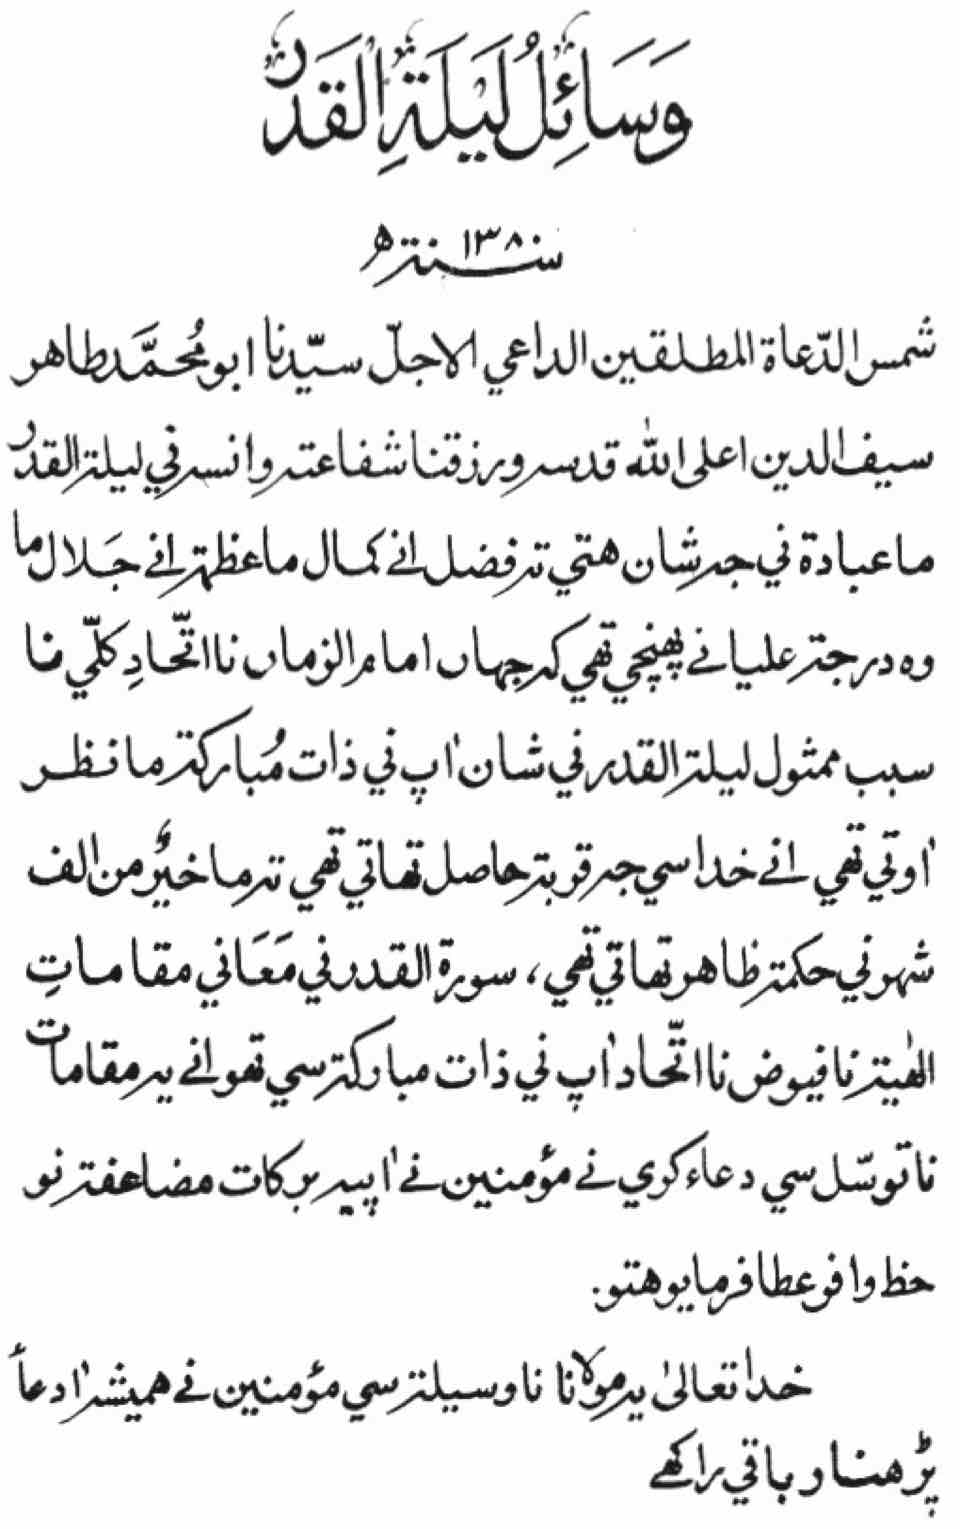 وَسَائِلُ لَيْلَةِ الْقَدْرِ
سنة ١٣٨٠ه
شمس الدّعاة المطلقين الداعي الاجلّ سيّدنا ابو مُحمَّد طاهر
سيف الدين اعلى الله قدسه ورزقنا شفاعته وانسه في ليلة القدر
ما عبادة ني جه شان هتي ته فضل انے كمال ما عظمة انے جَلال ما
وه درجة عليا نے پهنچي تهي كه جهاں امام الزماں نا اتّحادِ كلّي نا
سبب ممثول ليلة القدر ني شان اْپ ني ذات مُباركة ما نظر
اْوتي تهي انے خدا سي جه قربة حاصل تهاتي تهي ته ما خيرٌ من الف
شهر ني حكمة ظاهر تهاتي تهي، سورة القدر ني مَعَاني مقاماتِ
الٰهية نا فيوض نا اتّحاد اْپ ني ذات مباركة سي تهو انے يه مقامات
نا توسّل سي دعاء كري نے مؤمنين نے اْپيه بركات مضاعفة نو
حظ وافر عطا فرمايو هتو.
خدا تعالىٰ يه مولانا نا وسيلة سي مؤمنين نے هميشه اْ دعاْ
پڑهنار باقي راكهے